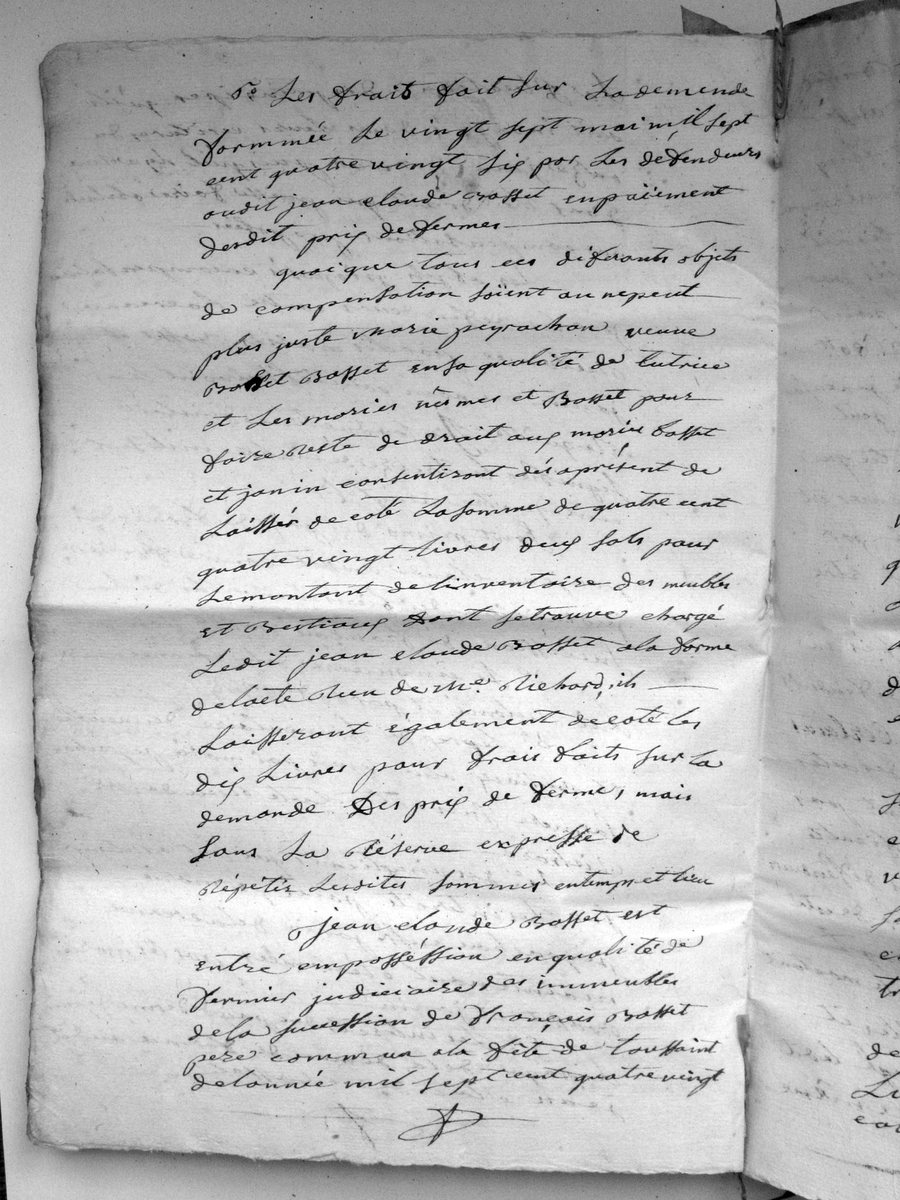 7o Les frait fait sur La demende
formmée Le vingt sept mai mil sept
cent quatre vingt six par Les défendeurs
audit jean claude Basset en païement
desdit prix de fermes
quoique tous ces diferants objets
de compensation soïent on ne peut
plus juste marie peyrachon veuve
Basset en sa qualité de tutrice
et Les mariés nesmes et Basset pour
faire Reste de droit aux mariés basset
et janin consentiront dés aprésent de
Laisser de coté La somme de quatre cent
quatre vingt livres deux sols pour
Le montant de l'inventaire des meubles
Et Bestiaux Dont se trouve chargé
Ledit jean claude Basset a la forme
de lacte Reçu de Me. Richard, ils
Laisseront également de coté les
dix Livres pour frais faits sur la
demande Des prix de ferme, mais
sous La Réserve expresse de
Répétér Lesdites sommes en temps et lieu
jean claude Basset est
entré empossession en qualité de
fermier judiciaire des immeubles
de la succession de françois Basset
pere commun a la fête de toussaint
de lannée mil sept cent quatre vingt